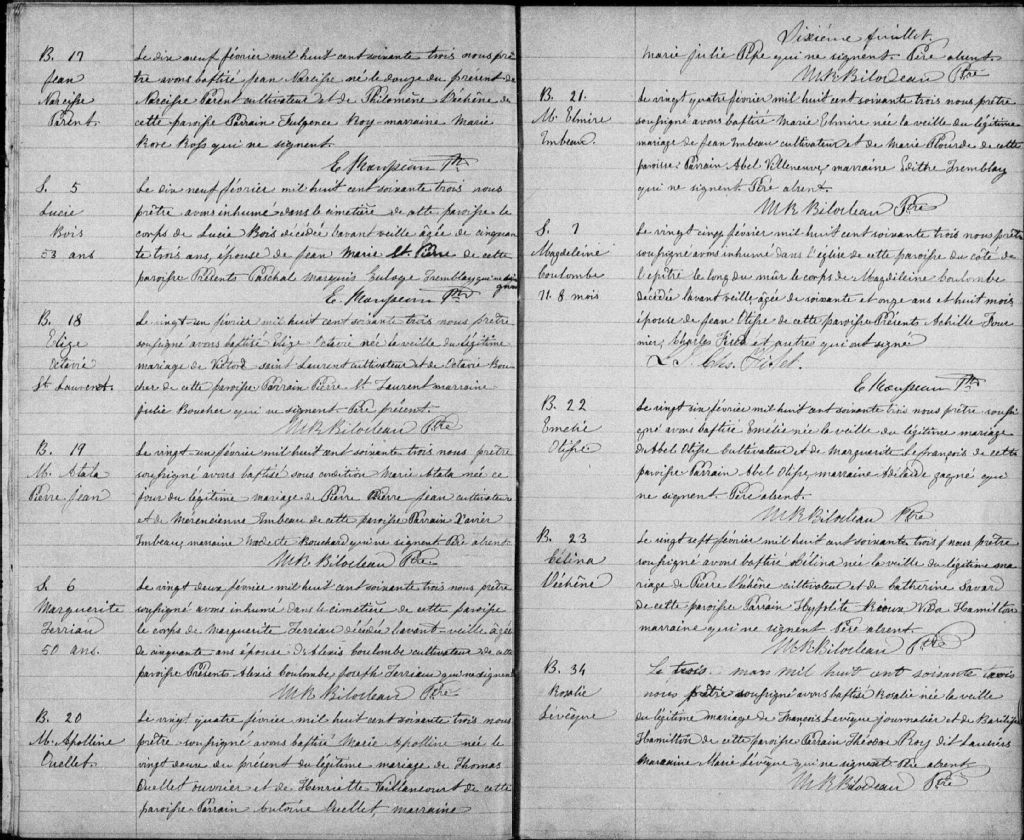 B. 17
Jean
Narcisse
Parent.
Le dix neuf février mil huit cent soixante trois nous prê
tre avons baptisé Jean Narcisse né le douze du present de
Narcisse Parent cultivateur et de Philomène Déchêne de
cette paroisse Parrain Fulgence Roy - marraine Marie
Rose Ross qui ne signent.
E Maupeau Ptre
S. 5
Lucie
Bois
53 ans
Le dix neuf février mil huit cent soixante trois nous
prêtre avons inhumé dans le cimetière de cette paroisse le
corps de Lucie Bois décédée l'avant veille âgée de cinquan
te trois ans, épouse de Jean Marie St Pierre de cette
paroisse Présents Paschal Marquis Euloge Tremblay qui ne si
gnent
E. Maupeau Ptre
B. 18
Elize
Octavie
St Laurent
Le vingt-un février mil huit cent soixante trois nous prêtre
soussigné avons baptisé Elize Octavie née la veille du légitime
mariage de Victor saint Laurent cultivateur et de Octavie Bou
cher de cette paroisse Parrain Pierre St Laurent marraine
Julie Boucher qui ne signent. Père présent.
M R Bilodeau Ptre
B. 19
M. Atala
Pierre Jean
Le vingt-un février mil huit cent soixante trois nous prêtre
soussigné avons baptisé sous condition Marie Atala née ce
jour du légitime mariage de Pierre Pierre Jean cultivateur
et de Mérencienne Imbeau de cette paroisse Parrain Xavier
Imbeau, marraine Modeste Bouchard qui ne signent Père absent.
M R Bilodeau Ptre
S. 6
Marguerite
Terriau
50 ans.
Le vingt deux février mil huit cent soixante trois nous prêtre
soussigné avons inhumé dans le cimetière de cette paroisse
le corps de Marguerite Terriau décédée l'avant-veille âgée
de cinquante ans épouse d'Alexis Coulombe cultivateur de cette
paroisse Présents Alexis Coulombe Joseph Terriau qui ne signent
M R Bilodeau Ptre
B. 20
M. Apolline
Ouellet.
Le vingt quatre février mil huit cent soixante trois nous
prêtre soussigné avons baptisé Marie Apolline née le
vingt deux du présent du légitime mariage de Thomas
Ouellet ouvrier et de Henriette Vaillancourt de cette
paroisse Parrain Antoine Ouellet, marraine
Dixième feuillet
Marie Julie Pépe qui ne signent. Père absent.
M R Bilodeau Ptre
B. 21.
M. Elmire
Imbeau.
Le vingt quatre février mil huit cent soixante trois nous prêtre
soussigné avons baptisé Marie Elmire née la veille du légitime
mariage de Jean Imbeau cultivateur et de Marie Plourde de cette
paroisse. Parrain Abel Villeneuve, marraine Edithe Tremblay
qui ne signent. Père absent.
M R Bilodeau Ptre
S. 7
Magdeleine
Coulombe
71. 8 mois
Le vingt cinq février mil huit cent soixante trois nous prêtre
soussigné avons inhumé dans l'église de cette paroisse du côté de
l'epître le long du mûr le corps de Magdeleine Coulombe
décédée l'avant veille âgée de soixante et onze ans et huit mois
épouse de Jean Otisse de cette paroisse Présents Achille Four
nier, Charles Fiset et autres qui ont signé
Chs. Fiset.
E Maupeau Ptre
B. 22
Emelie
Otisse
Le vingt six février mil huit cent soixante trois nous prêtre soussi
gné avons baptisé Emélie née la veille du légitime mariage
d'Abel Otisse Cultivateur et de Marguerite Le françois de cette
paroisse Parrain Abel Otisse, marraine Adelaide Gagné qui
ne signent. Père absent.
M R Bilodeau Ptre
B. 23
Célina
Déchêne
Le vingt sept février mil huit cent soixante trois nous prêtre
soussigné avons baptisé Célina née la veille du légitime ma
riage de Pierre Déchêne cultivateur et de Catherine Savard
de cette paroisse Parrain Hyppolite Rioux Vida Hamilton
marraine qui ne signent Père absent.
M R Bilodeau Ptre
B. 34
Rosalie
Lévêque
Le trois mars mil huit cent soixante trois
nous prêtre soussigné avons baptisé Rosalie née la veille
du légitime mariage de François Levêque journalier et de Basilisse
Hamilton de cette paroisse Parrain Théodore Roy dit Lausiers
Marraine Marie Levêque qui ne signent Père absent
M R Bilodeau Ptre